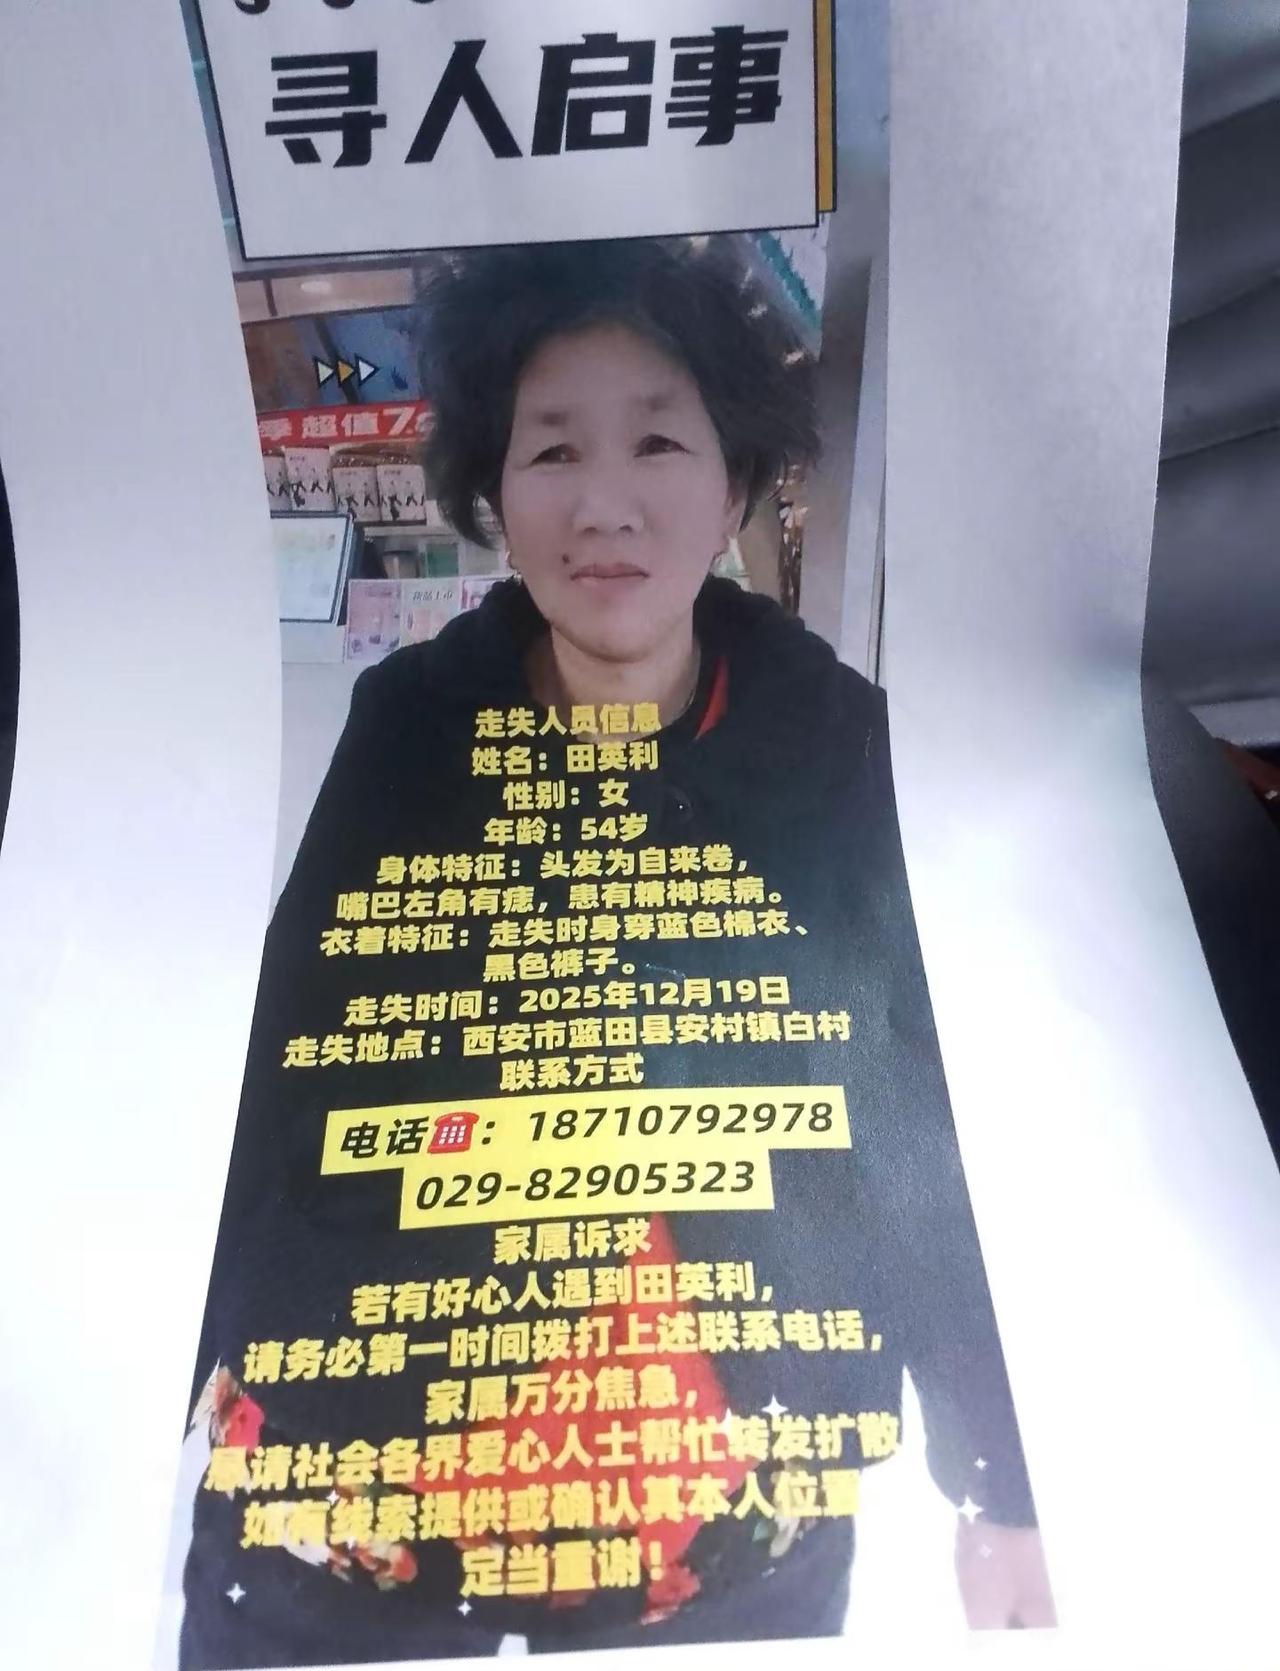 寻人启事
季超值7.
新品上市
走失人员信息
姓名：田英利
性别：女
年龄：54岁
身体特征：头发为自来卷，
嘴巴左角有痣，患有精神疾病。
衣着特征：走失时身穿蓝色棉衣、
黑色裤子。
走失时间：2025年12月19日
走失地点：西安市蓝田县安村镇白村
联系方式
电话☎：18710792978
029-82905323
家属诉求
若有好心人遇到田英利，
请务必第一时间拨打上述联系电话，
家属万分焦急，
恳请社会各界爱心人士帮忙转发扩散
如有线索提供或确认其本人位置
定当重谢！